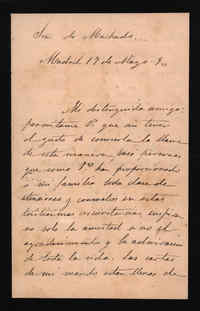 Sra. de Machado.
Madrid 17 de Mayo 9
Mi distinguida amiga:
permítame V. que sin tener
el gusto de conocerla la llame
de esta manera, pues personas
que como V. ha proporcionado
á mi familia toda clase de
atenciones y consuelos en estas
tristísimas circunstancias
es solo la amistad sino el
agradecimiento y la admiración
de toda la vida; las cartas
de mi marido están llenas de